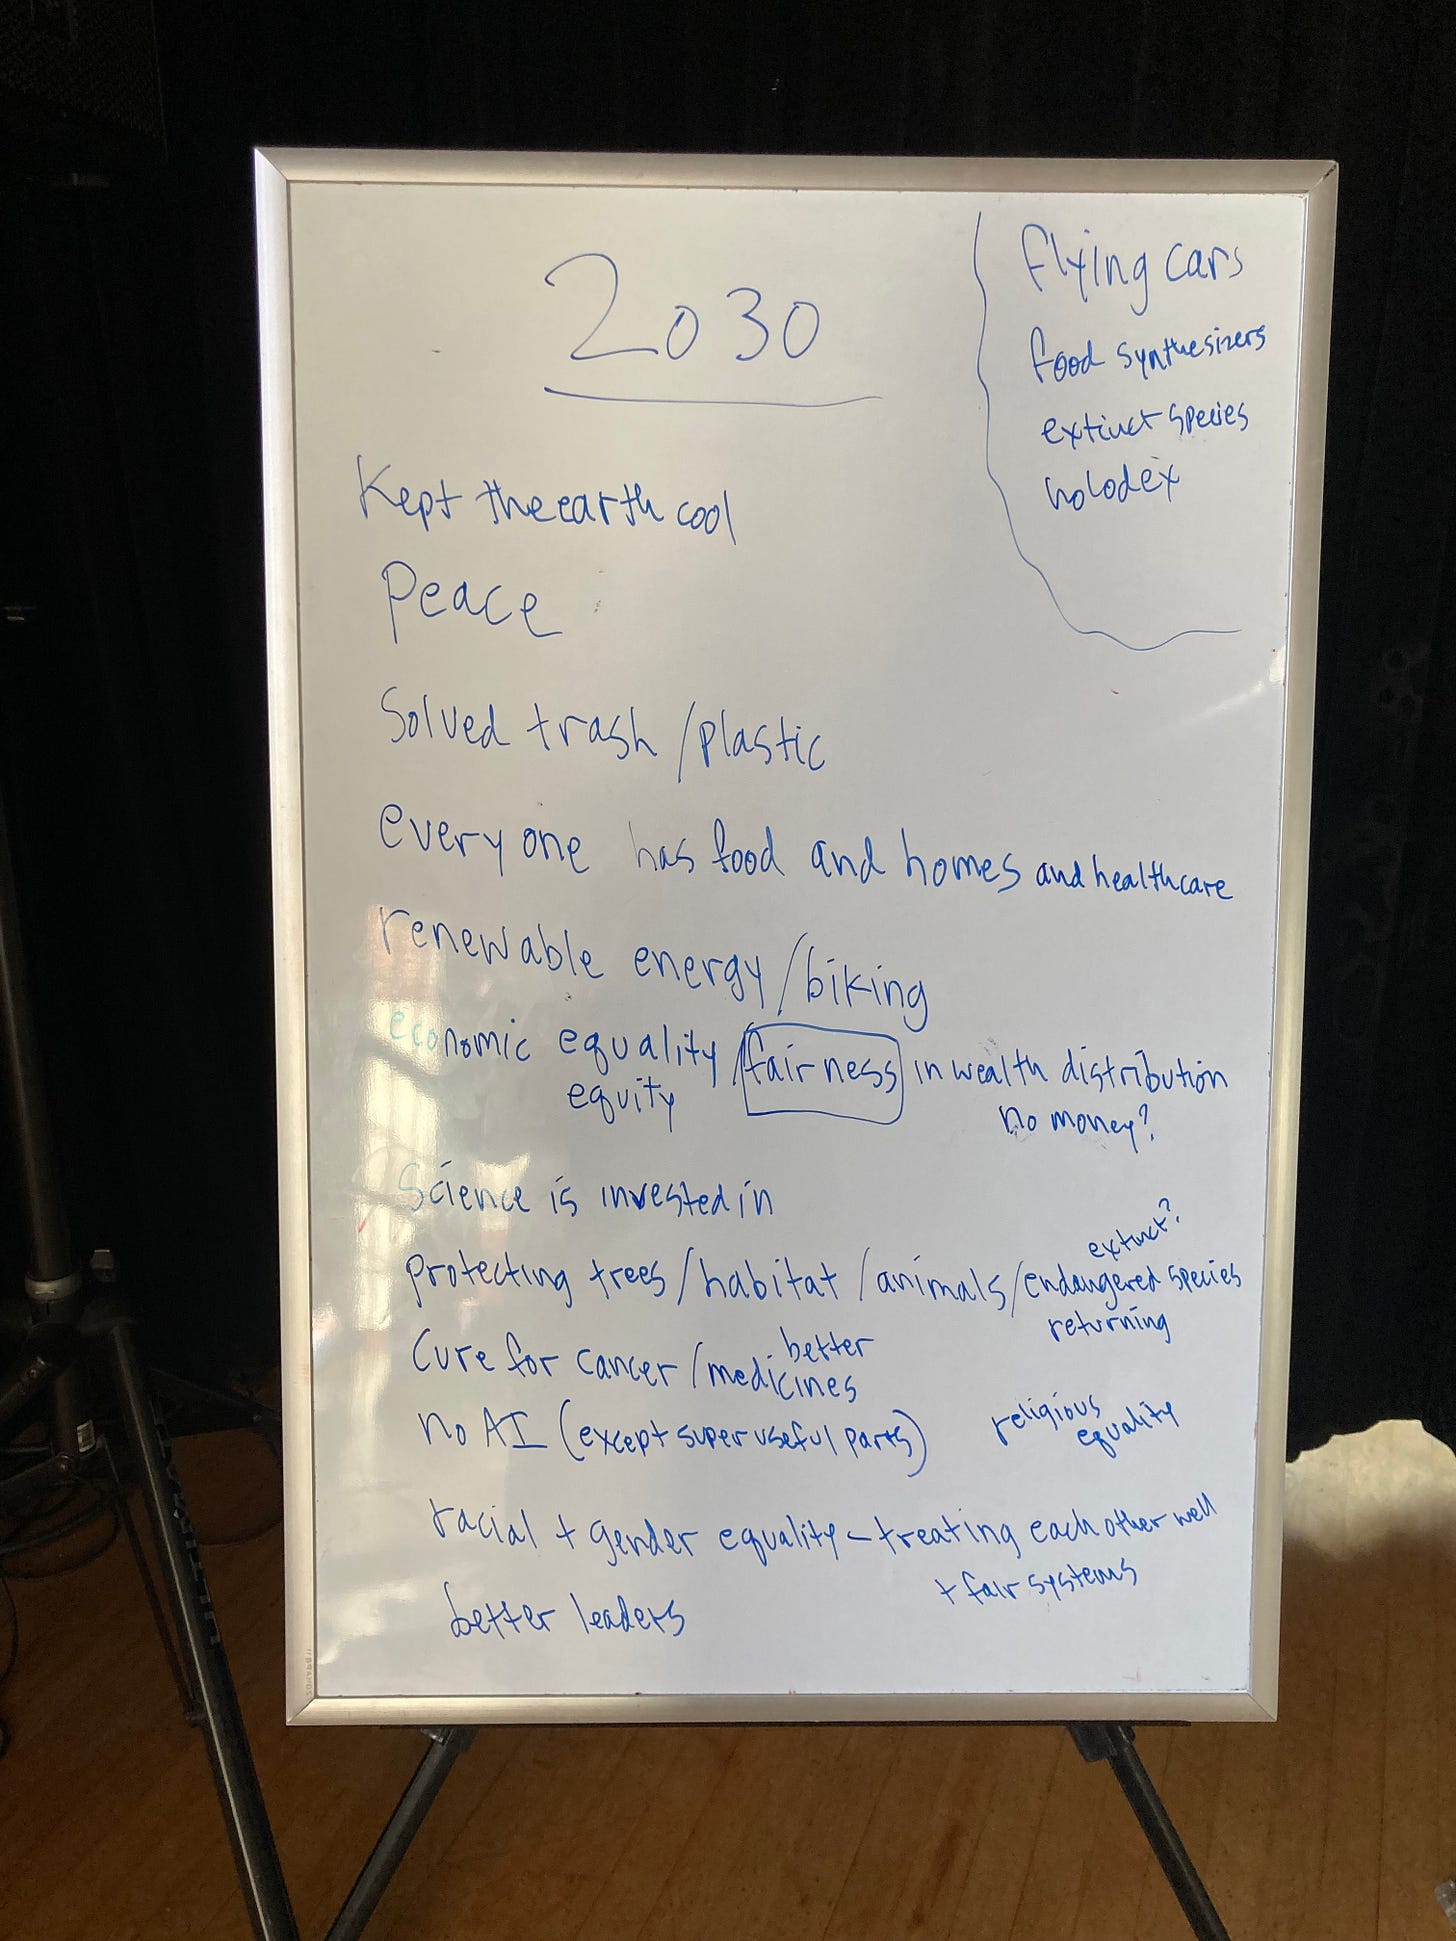 2030
flying cars
food synthesizers
extinct species
holodex
Kept the earth cool
Peace
Solved trash/plastic
everyone has food and homes and healthcare
renewable energy/biking
economic equality/fairness in wealth distribution
equity
no money?
Science is invested in
extinct?
protecting trees/habitat/animals/endangered species
returning
better
Cure for cancer/medicines
no AI (except super useful parts)
religious
equality
racial + gender equality - treating each other well
+ fair systems
better leaders